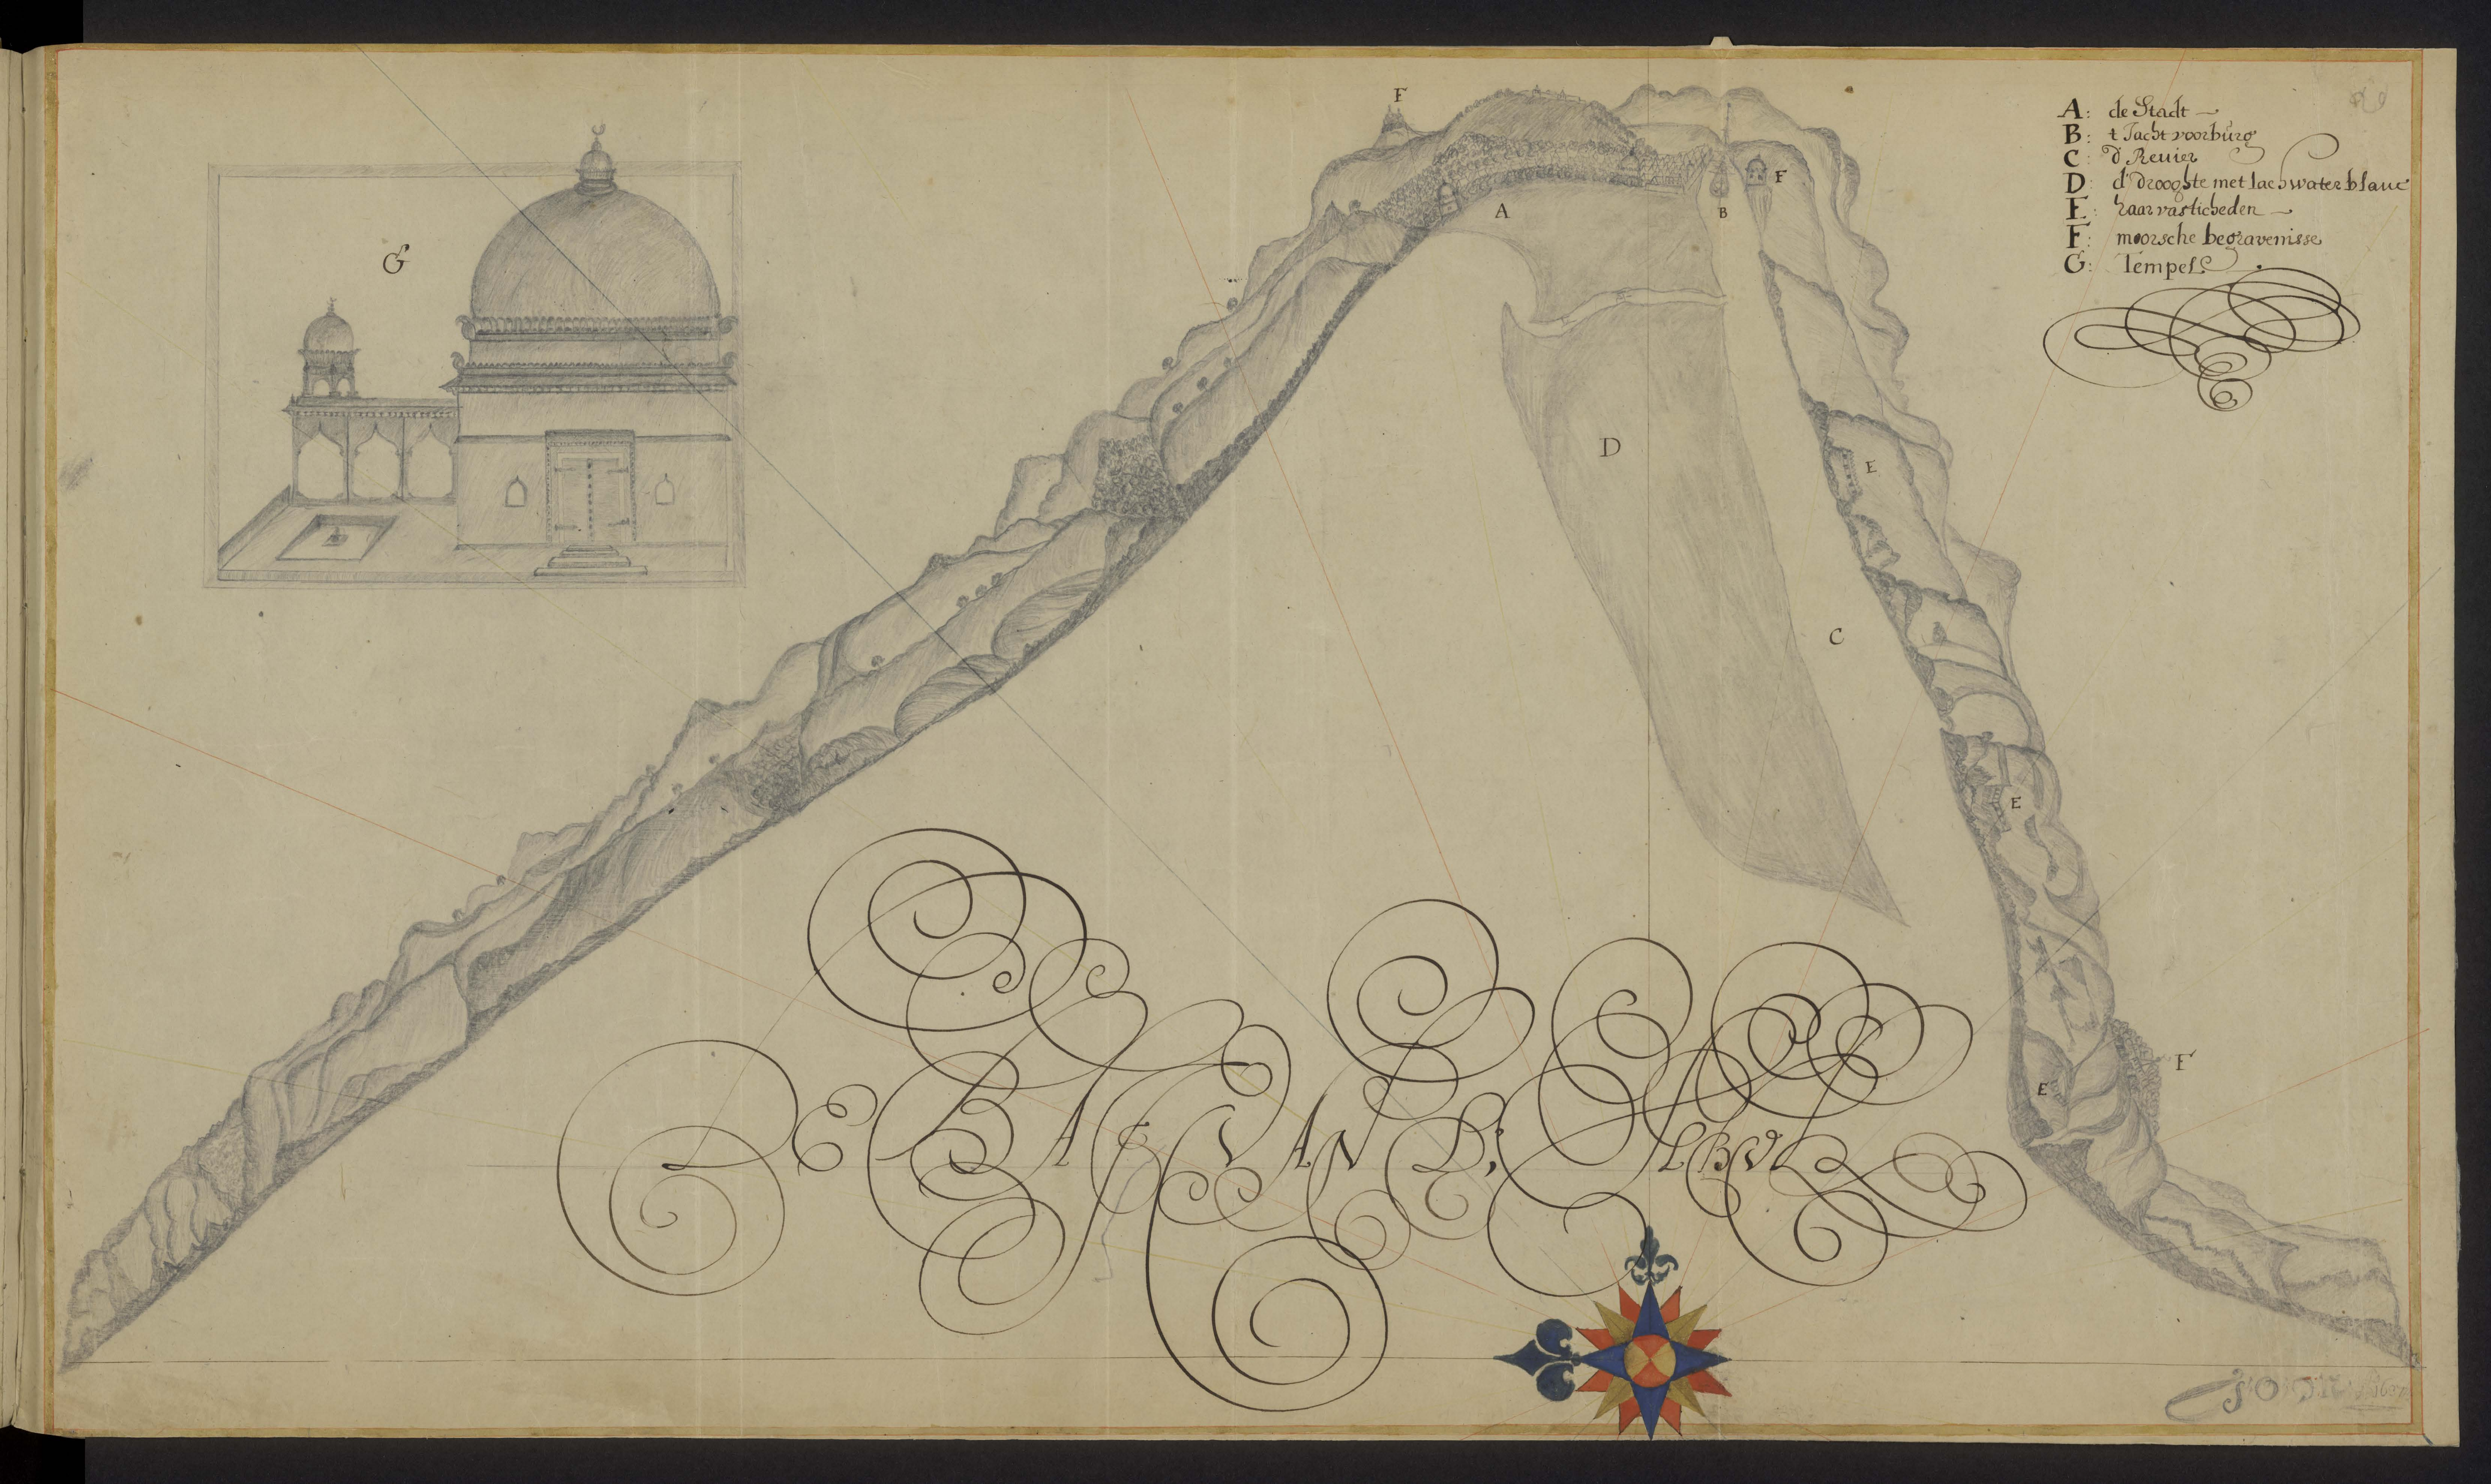 F
A: de Stadt
B: t Jacht voorburg
C: d Revier
D: d'drooghte met laeh water blanc
E: haar vasticheden
F: moorsche begravenisse
G: Tempel
F
A
B
G
D
E
C
E
F
E
DE BAIE VAN